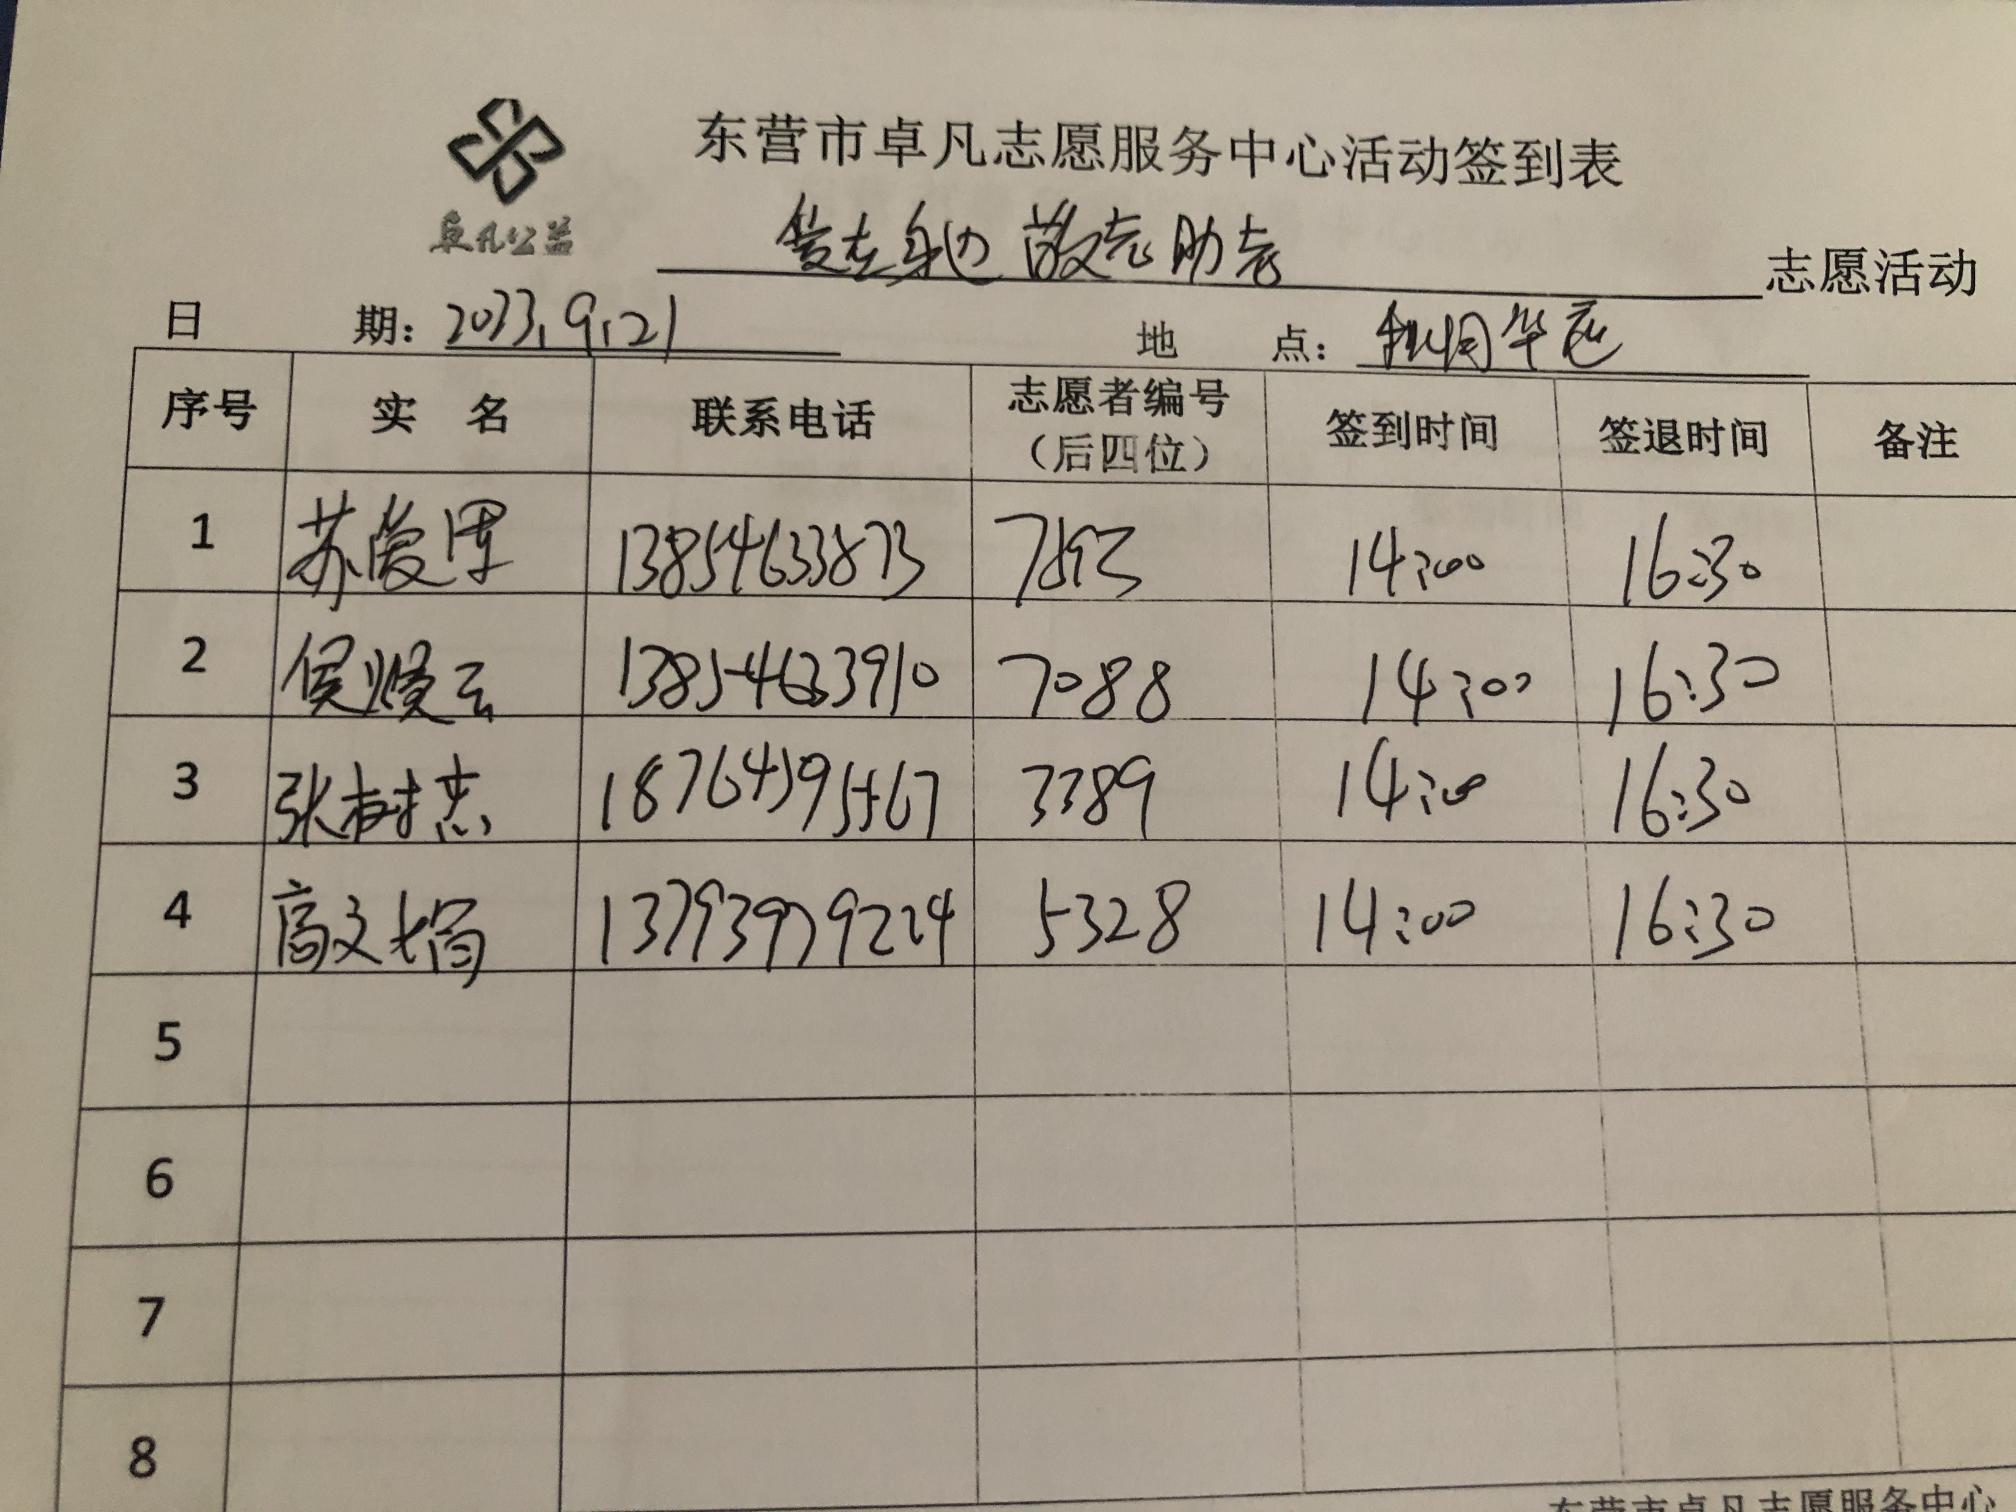 东营市卓凡志愿服务中心活动签到表
卓凡公益
爱在身边 敬老助老 志愿活动
日 期: 2023.9.21 地 点: 华园
序号 实 名 联系电话 志愿者编号(后四位) 签到时间 签退时间 备注
1 苏爱 13854633873 7893 14:00 16:30
2 侯爱云 13854633910 7088 14:00 16:30
3 张树志 18764395467 3389 14:00 16:30
4 高文 13793979224 5328 14:00 16:30
5
6
7
8
东营市卓凡志愿服务中心